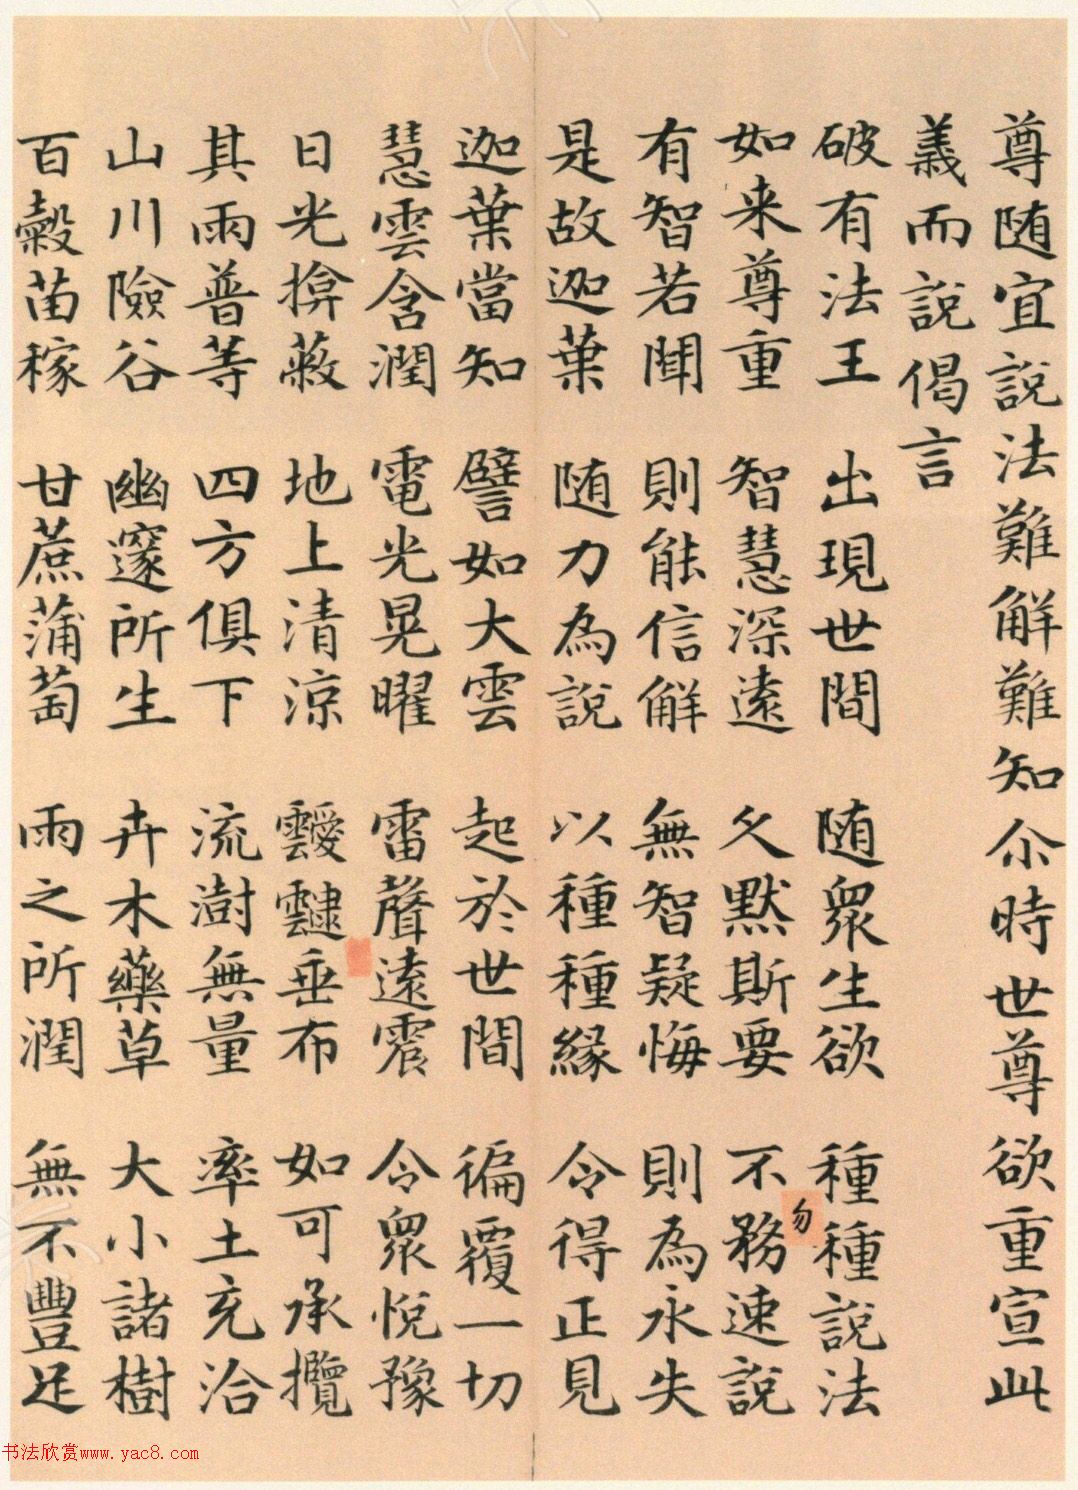 尊随宜說法難解難知尒時世尊欲重宣此
義而說偈言
破有法王 出現世間 随衆生欲 種種說法
如来尊重 智慧深遠 久默斯要 不務速說
勿
有智若聞 則能信解 無智疑悔 則為永失
是故迦葉 随力為說 以種種緣 令得正見
迦葉當知 譬如大雲 起於世間 徧覆一切
慧雲含潤 電光晃曜 雷聲遠震 令衆悅豫
日光揜蔽 地上清涼 靉靆垂布 如可承攬
其雨普等 四方俱下 流澍無量 率土充洽
山川險谷 幽邃所生 卉木藥草 大小諸樹
百穀苗稼 甘蔗蒲萄 雨之所潤 無不豐足
书法欣赏www.yac8.com